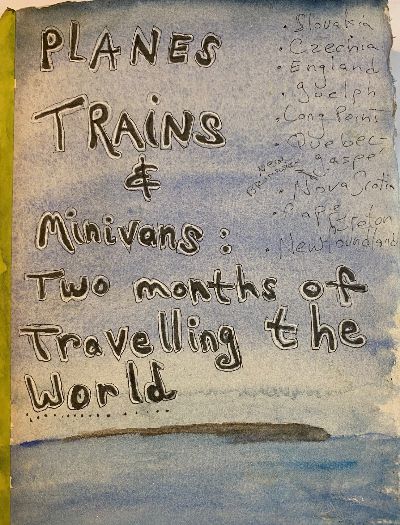 PLANES
TRAINS
&
Minivans:
Two months of
Travelling the
World
• Slovakia
• Czechia
• England
• Guelph
• Long Point
• Quebec,
gaspe
New
Brunswick
• Nova Scotia
• Cape
Breton
• Newfoundland